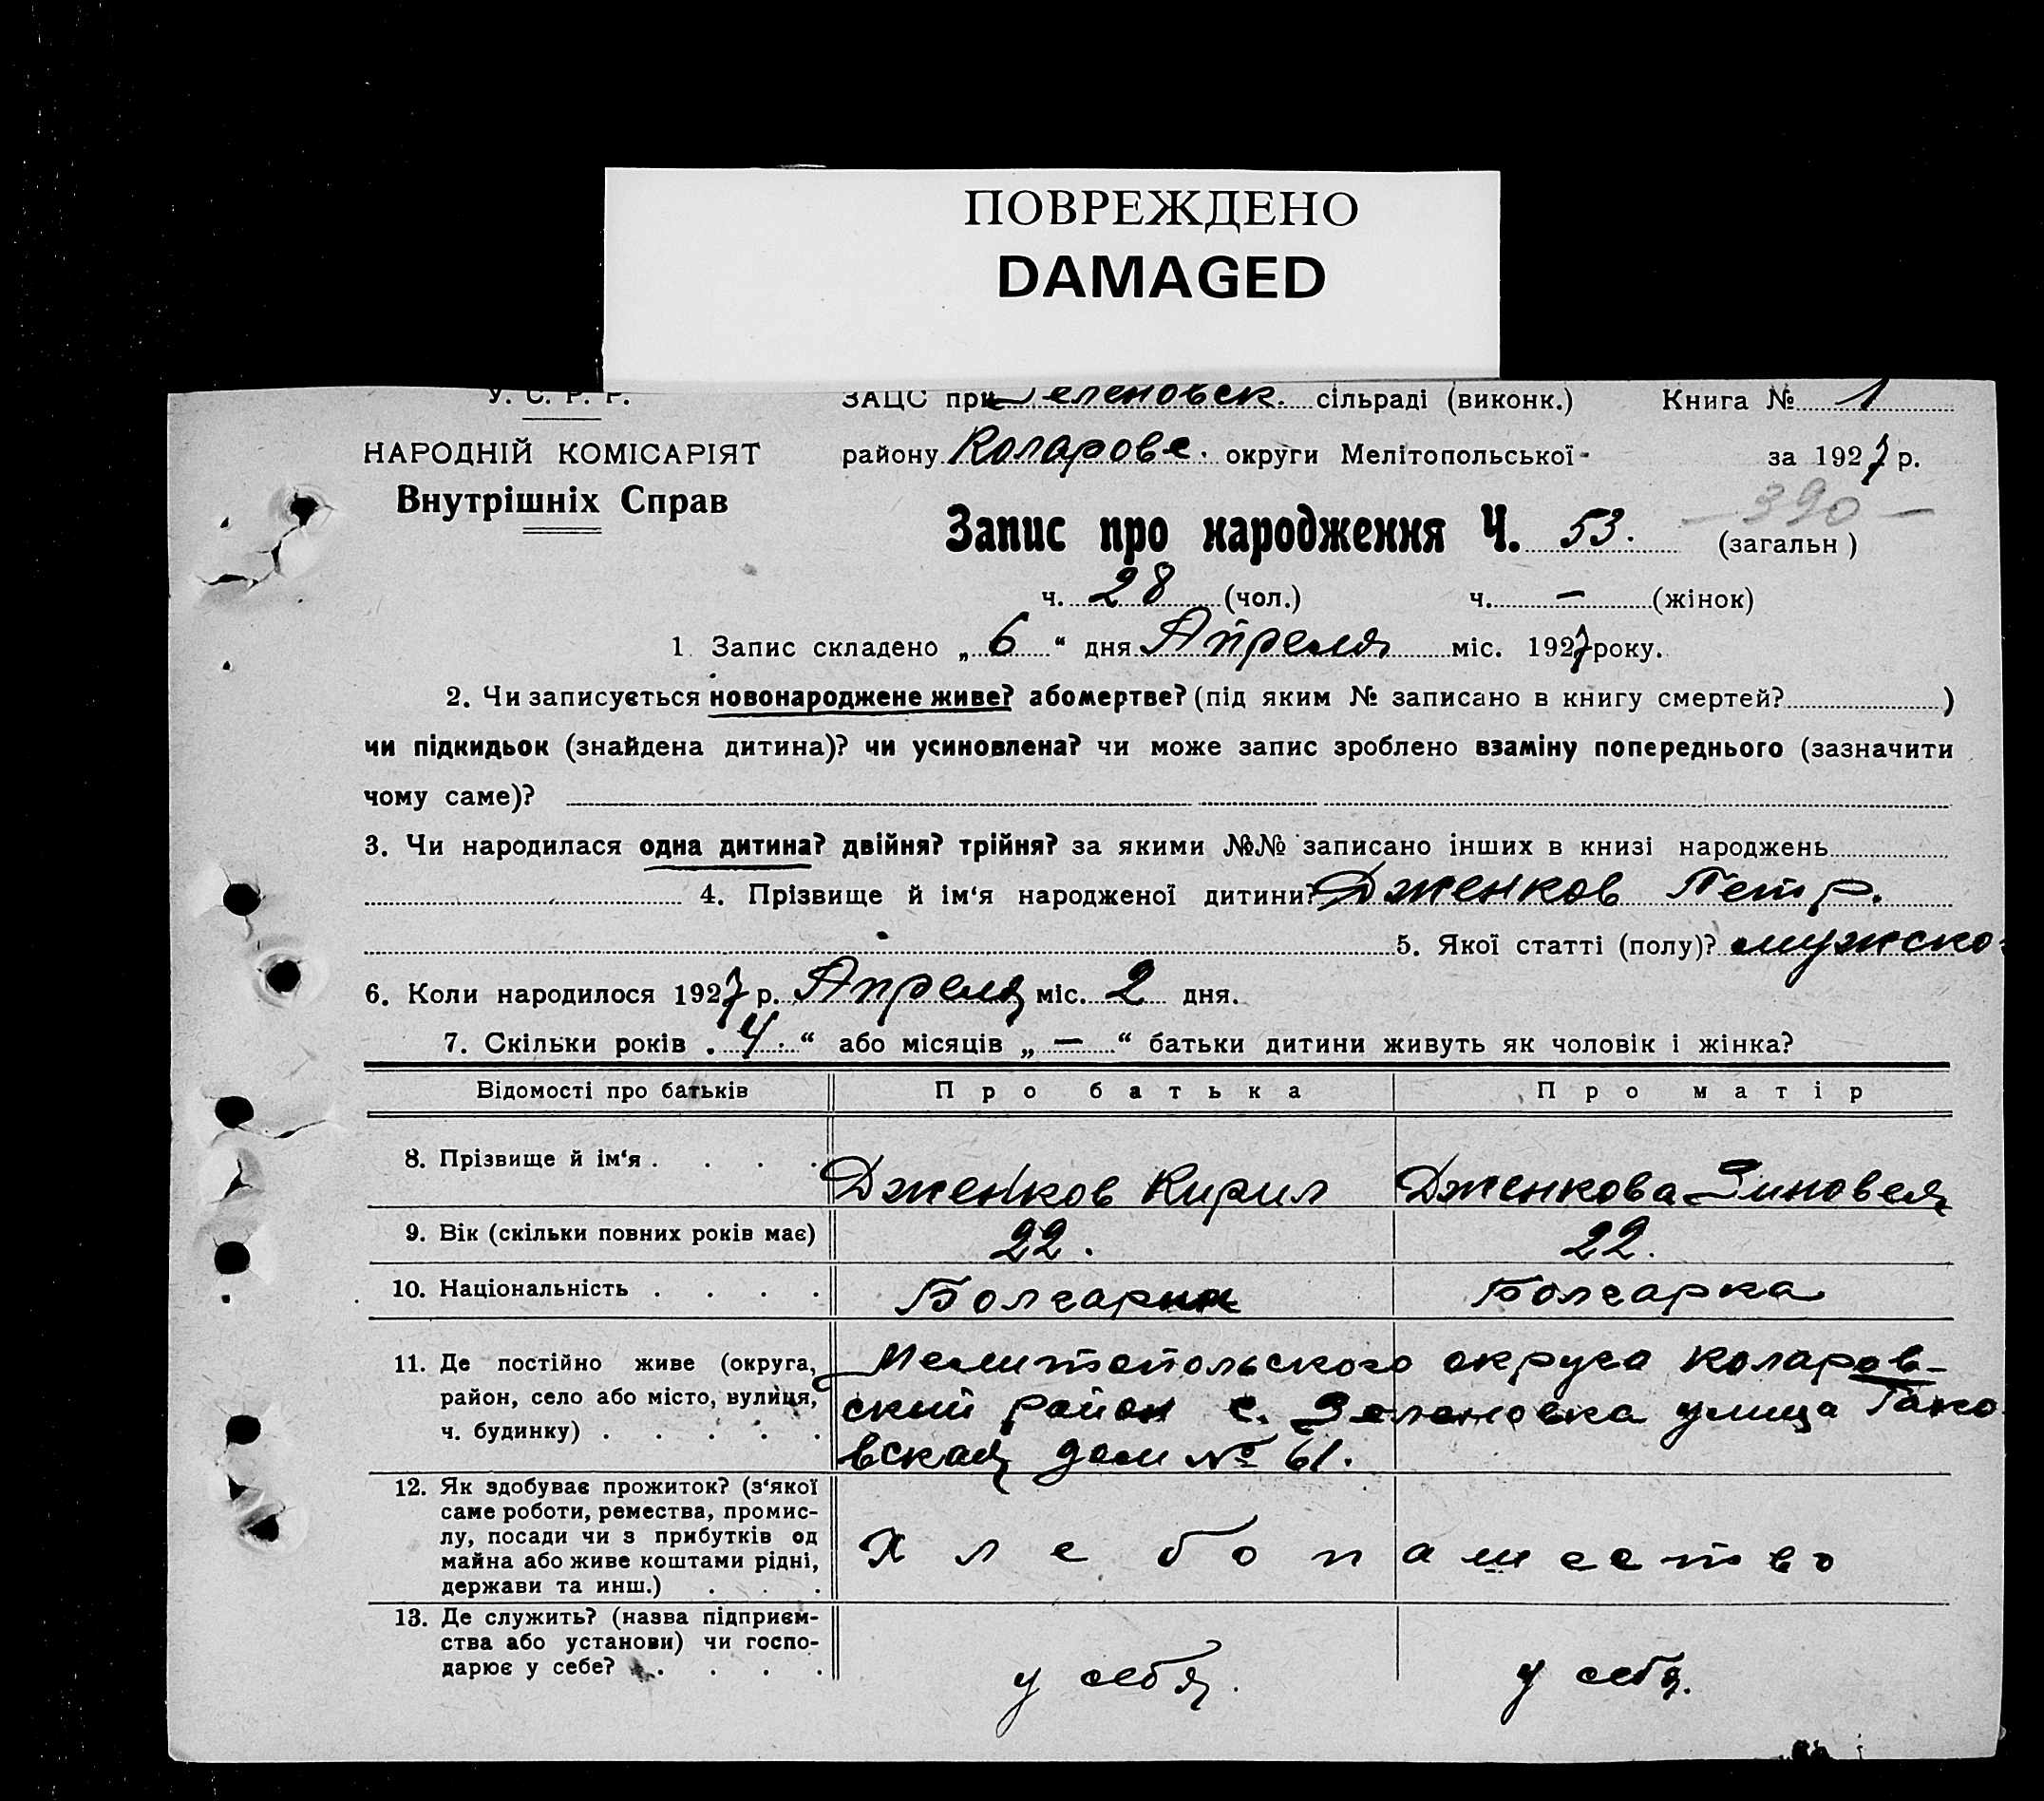 ПОВРЕЖДЕНО
DAMAGED
У. С. Р. Р. ЗАЦС при Зеленовск. сільраді (виконк.) Книга № 1
НАРОДНІЙ КОМІСАРІЯТ району Коларовс. округи Мелітопольської за 1927 р.
Внутрішніх Справ
— 390 —
Запис про народження Ч. 53. (загальн)
ч. 28 (чол.) ч. — (жінок)
1. Запис складено „ 6 “ дня Апреля міс. 1927 року.
2. Чи записується новонароджене живе? абомертве? (під яким № записано в книгу смертей? )
чи підкидьок (знайдена дитина)? чи усиновлена? чи може запис зроблено взаміну попереднього (зазначити
чому саме)?
3. Чи народилася одна дитина? двійня? трійня? за якими №№ записано інших в книзі народжень
4. Прізвище й ім‘я народженої дитини? Дженков Петр.
5. Якої статті (полу)? мужско
6. Коли народилося 1927 р. Апреля міс. 2 дня.
7. Скільки років „ 4. “ або місяців „ — “ батьки дитини живуть як чоловік і жінка?
Відомості про батьків Про батька Про матір
8. Прізвище й ім‘я . . . . Дженков Кирил Дженкова Зиновея
9. Вік (скільки повних років має) 22. 22.
10. Національність . . . . Болгарин Болгарка
11. Де постійно живе (округа, Мелитопольского округа коларов-
район, село або місто, вулиця, ский район с. Зеленовка улица Гако
ч. будинку) . . . . . вская дом № 61.
12. Як здобуває прожиток? (з‘якої
саме роботи, ремества, промис-
лу, посади чи з прибутків од
майна або живе коштами рідні, Хлебопашество
держави та инш.) . . .
13. Де служить? (назва підприєм-
ства або установи) чи госпо-
дарює у себе? . . . . у себя. у себя.